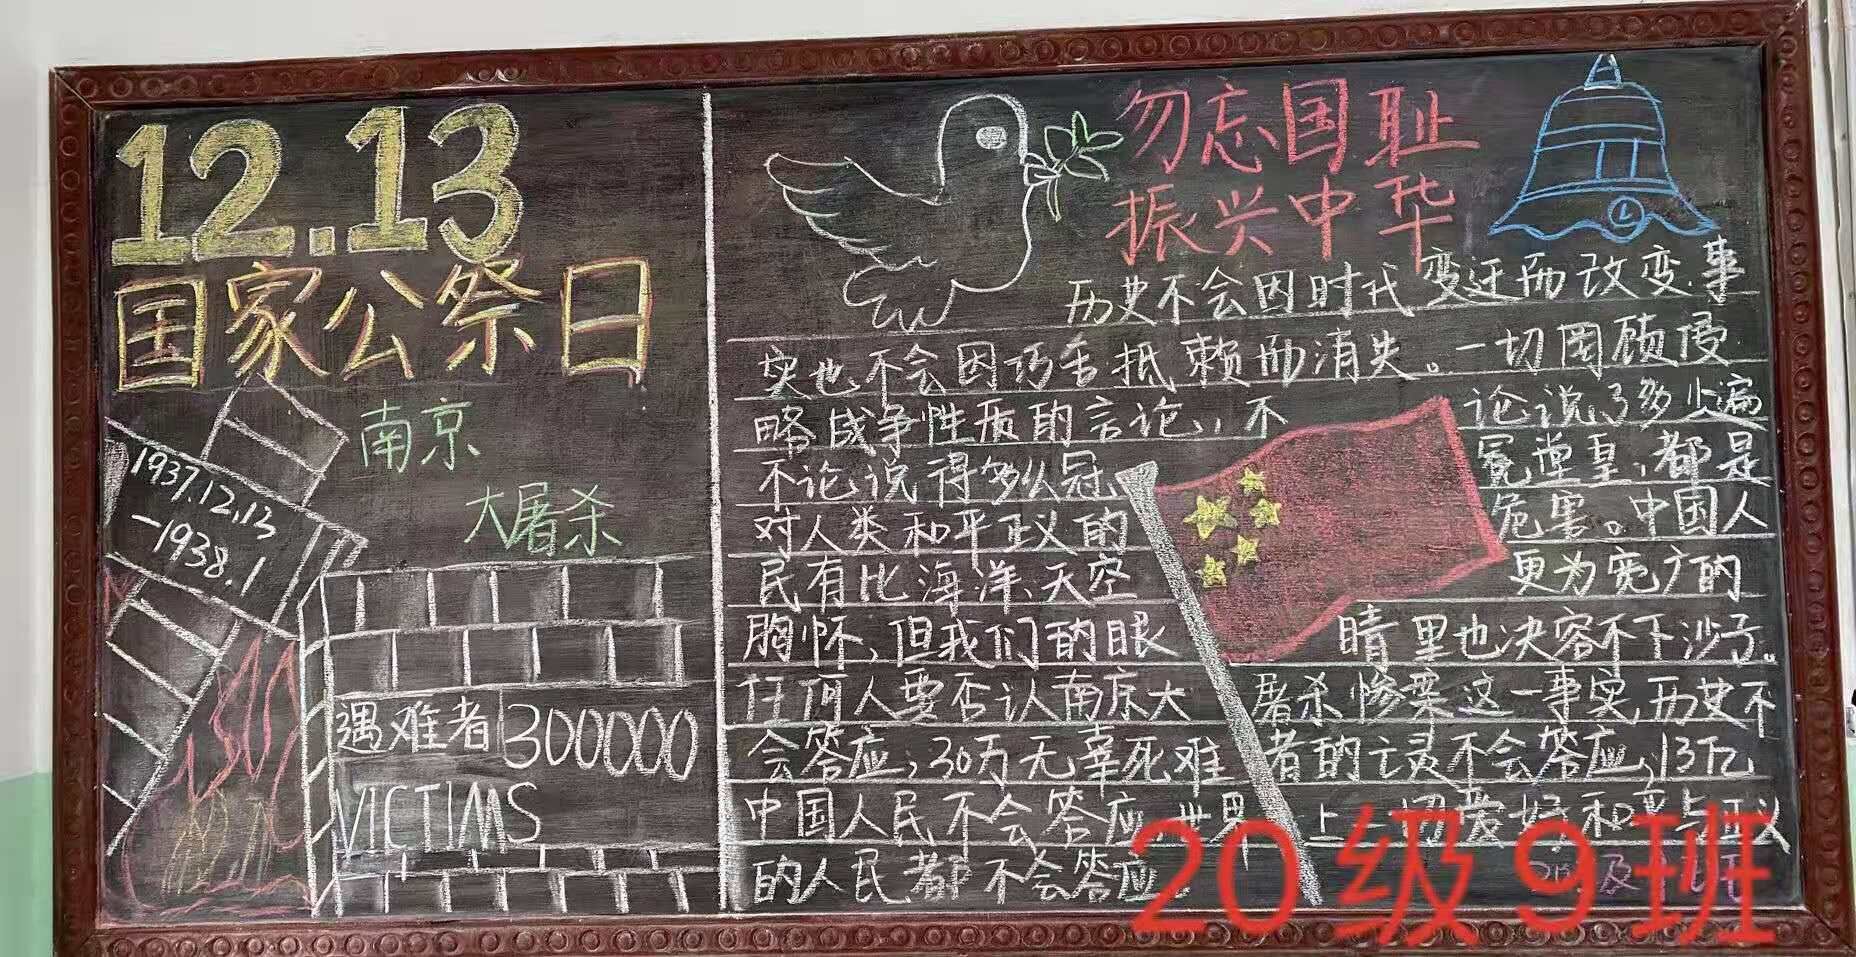 12.13
国家公祭日
南京
大屠杀
1937.12.13
-1938.1
遇难者 300000
VICTIMS
勿忘国耻
振兴中华
历史不会因时代变迁而改变.事
实也不会因巧舌抵赖而消失。一切罔顾侵
略战争性质的言论,不论说了多少遍
不论说得多么冠冕堂皇,都是
对人类和平正义的危害。中国人
民有比海洋、天空更为宽广的
胸怀,但我们的眼睛里也决容不下沙子。
任何人要否认南京大屠杀惨案这一事实,历史不
会答应,30万无辜死难者的亡灵不会答应,13亿
中国人民不会答应,世界上一切爱好和平与正义
的人民都不会答应。
20级9班